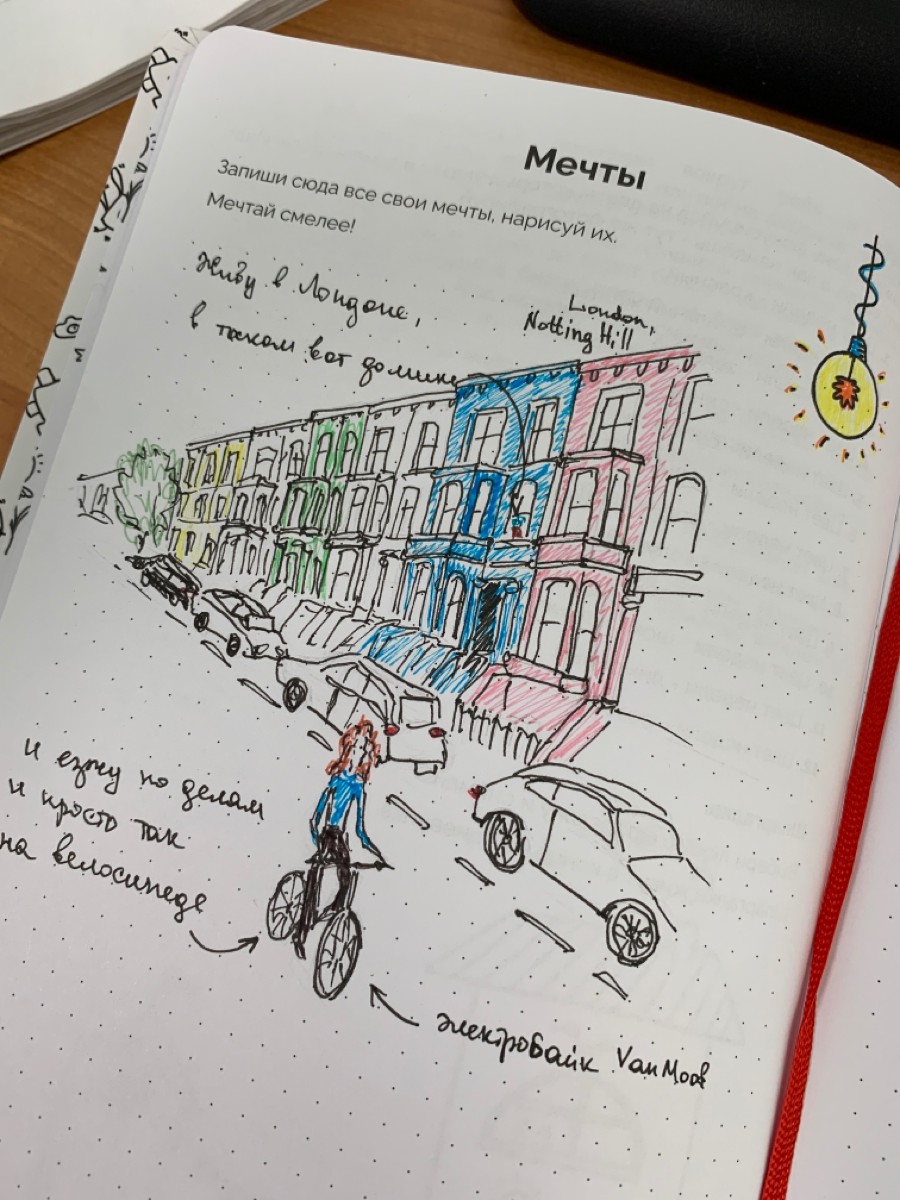 Мечты
Запиши сюда все свои мечты, нарисуй их.
Мечтай смелее!
Живу в Лондоне,
в таком вот домике
London,
Notting Hill
и езжу по делам
и просто так
на велосипеде
электробайк VanMoof